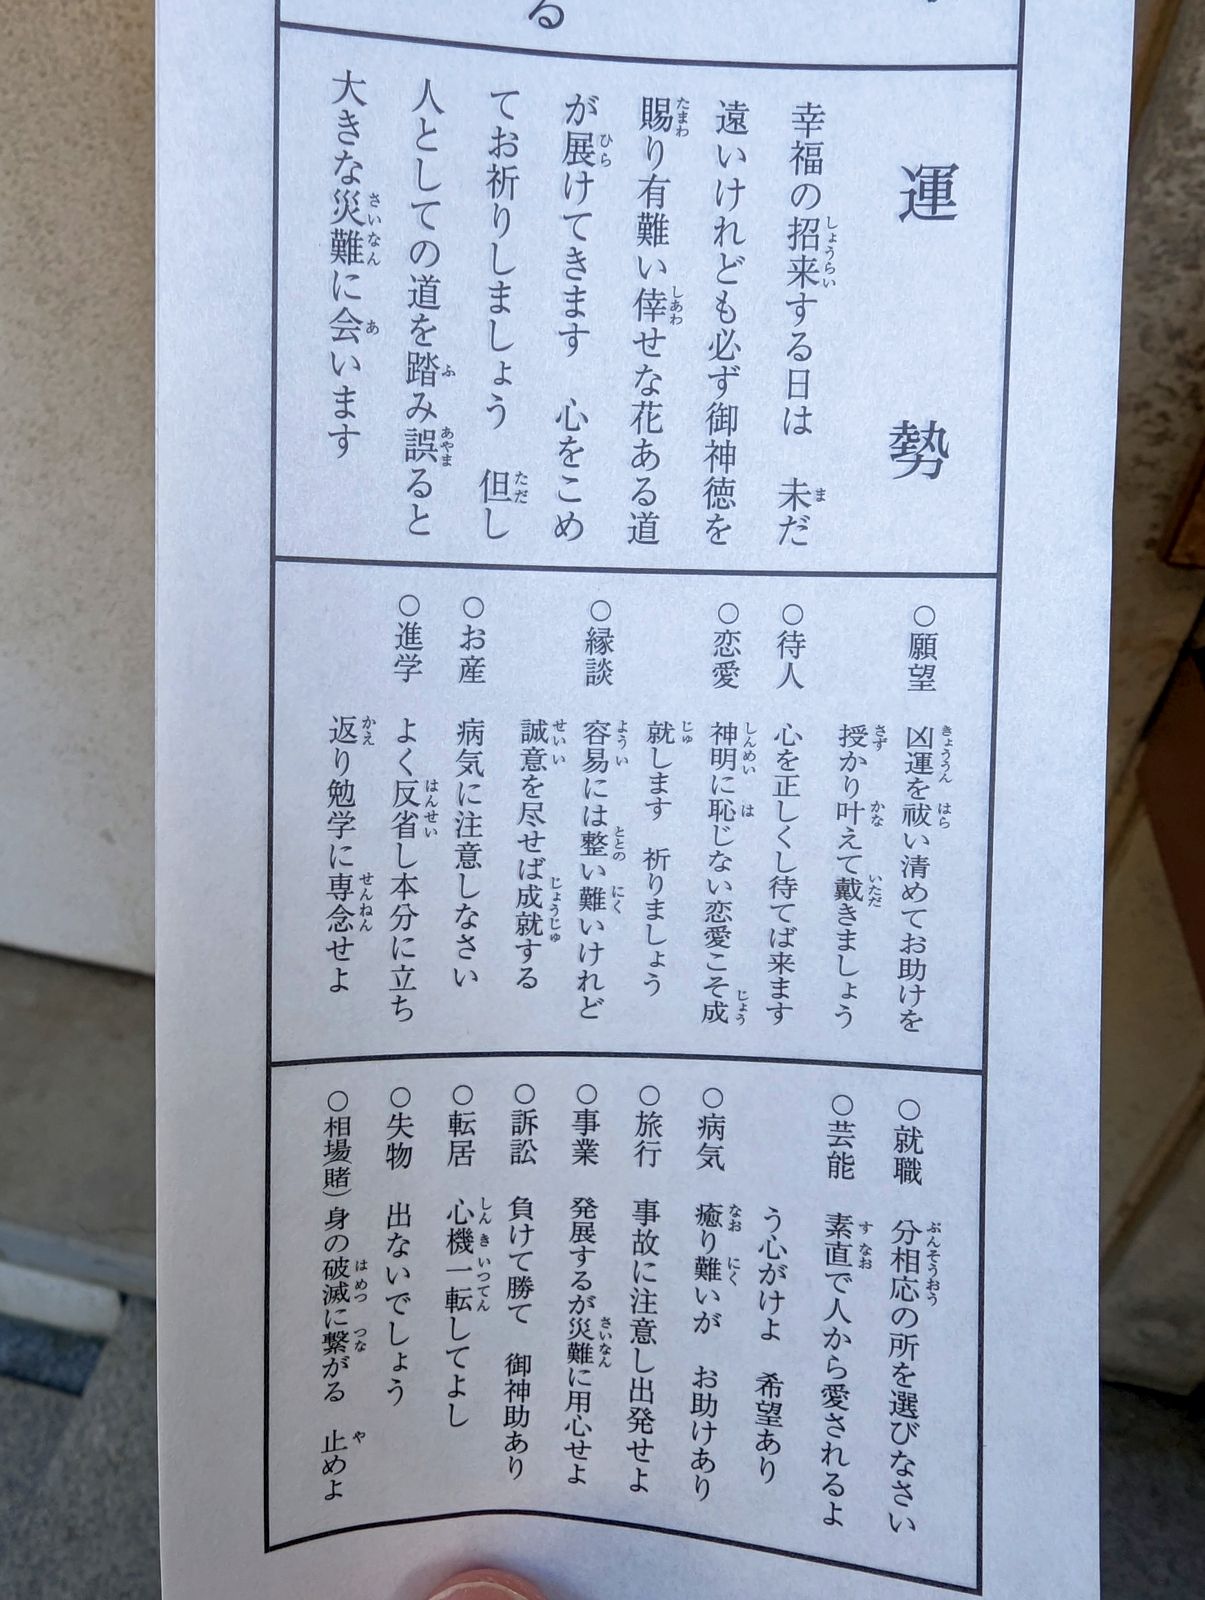 る
運勢
幸福の招来する日は　未だ
遠いけれども必ず御神徳を
賜り有難い倖せな花ある道
が展けてきます　心をこめ
てお祈りしましょう　但し
人としての道を踏み誤ると
大きな災難に会います
○願望　凶運を祓い清めてお助けを
授かり叶えて戴きましょう
○待人　心を正しくし待てば来ます
○恋愛　神明に恥じない恋愛こそ成
就します　祈りましょう
○縁談　容易には整い難いけれど
誠意を尽せば成就する
○お産　病気に注意しなさい
○進学　よく反省し本分に立ち
返り勉学に専念せよ
○就職　分相応の所を選びなさい
○芸能　素直で人から愛されるよ
う心がけよ　希望あり
○病気　癒り難いが　お助けあり
○旅行　事故に注意し出発せよ
○事業　発展するが災難に用心せよ
○訴訟　負けて勝て　御神助あり
○転居　心機一転してよし
○失物　出ないでしょう
○相場(賭)　身の破滅に繋がる　止めよ